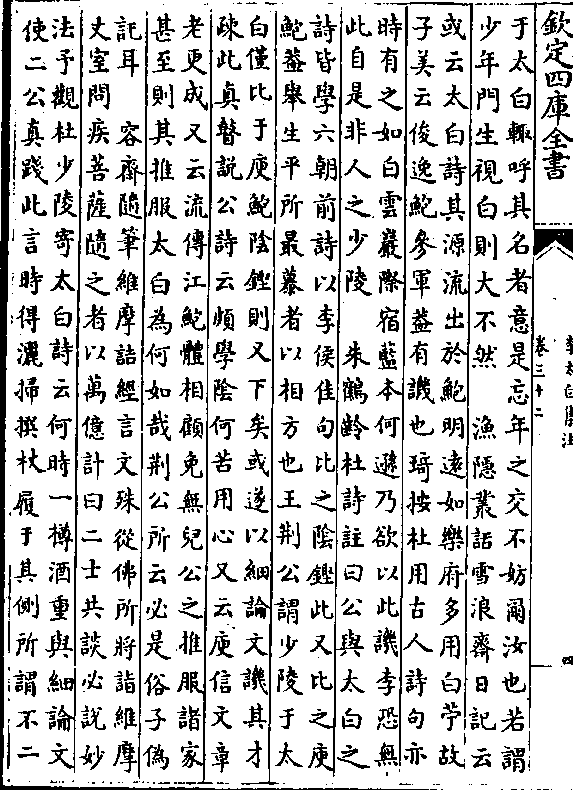 欽定四庫全書
李太白集注
卷三十二
四
于太白輒呼其名者意是忘年之交不妨爾汝也若謂
少年門生視白則大不然　漁隱叢話雪浪齋日記云
或云太白詩其源流出於鮑明遠如樂府多用白苧故
子美云俊逸鮑參軍葢有譏也琦按杜用古人詩句亦
時有之如白雲巖際宿藍本何遜乃欲以此譏李恐無
此自是非人之少陵　朱鶴齡杜詩註曰公與太白之
詩皆學六朝前詩以李侯佳句比之陰鏗此又比之庾
鮑葢舉生平所最慕者以相方也王荆公謂少陵于太
白僅比于庾鮑陰鏗則又下矣或遂以細論文譏其才
疎此真瞽說公詩云頗學陰何苦用心又云庾信文章
老更成又云流傳江鮑體相顧免無兒公之推服諸家
甚至則其推服太白為何如哉荆公所云必是俗子偽
託耳　容齋隨筆維摩詰經言文殊從佛所將詣維摩
丈室問疾菩薩隨之者以萬億計曰二士共談必説妙
法予觀杜少陵寄太白詩云何時一樽酒重與細論文
使二公真踐此言時得灑掃撰杖屨于其側所謂不二